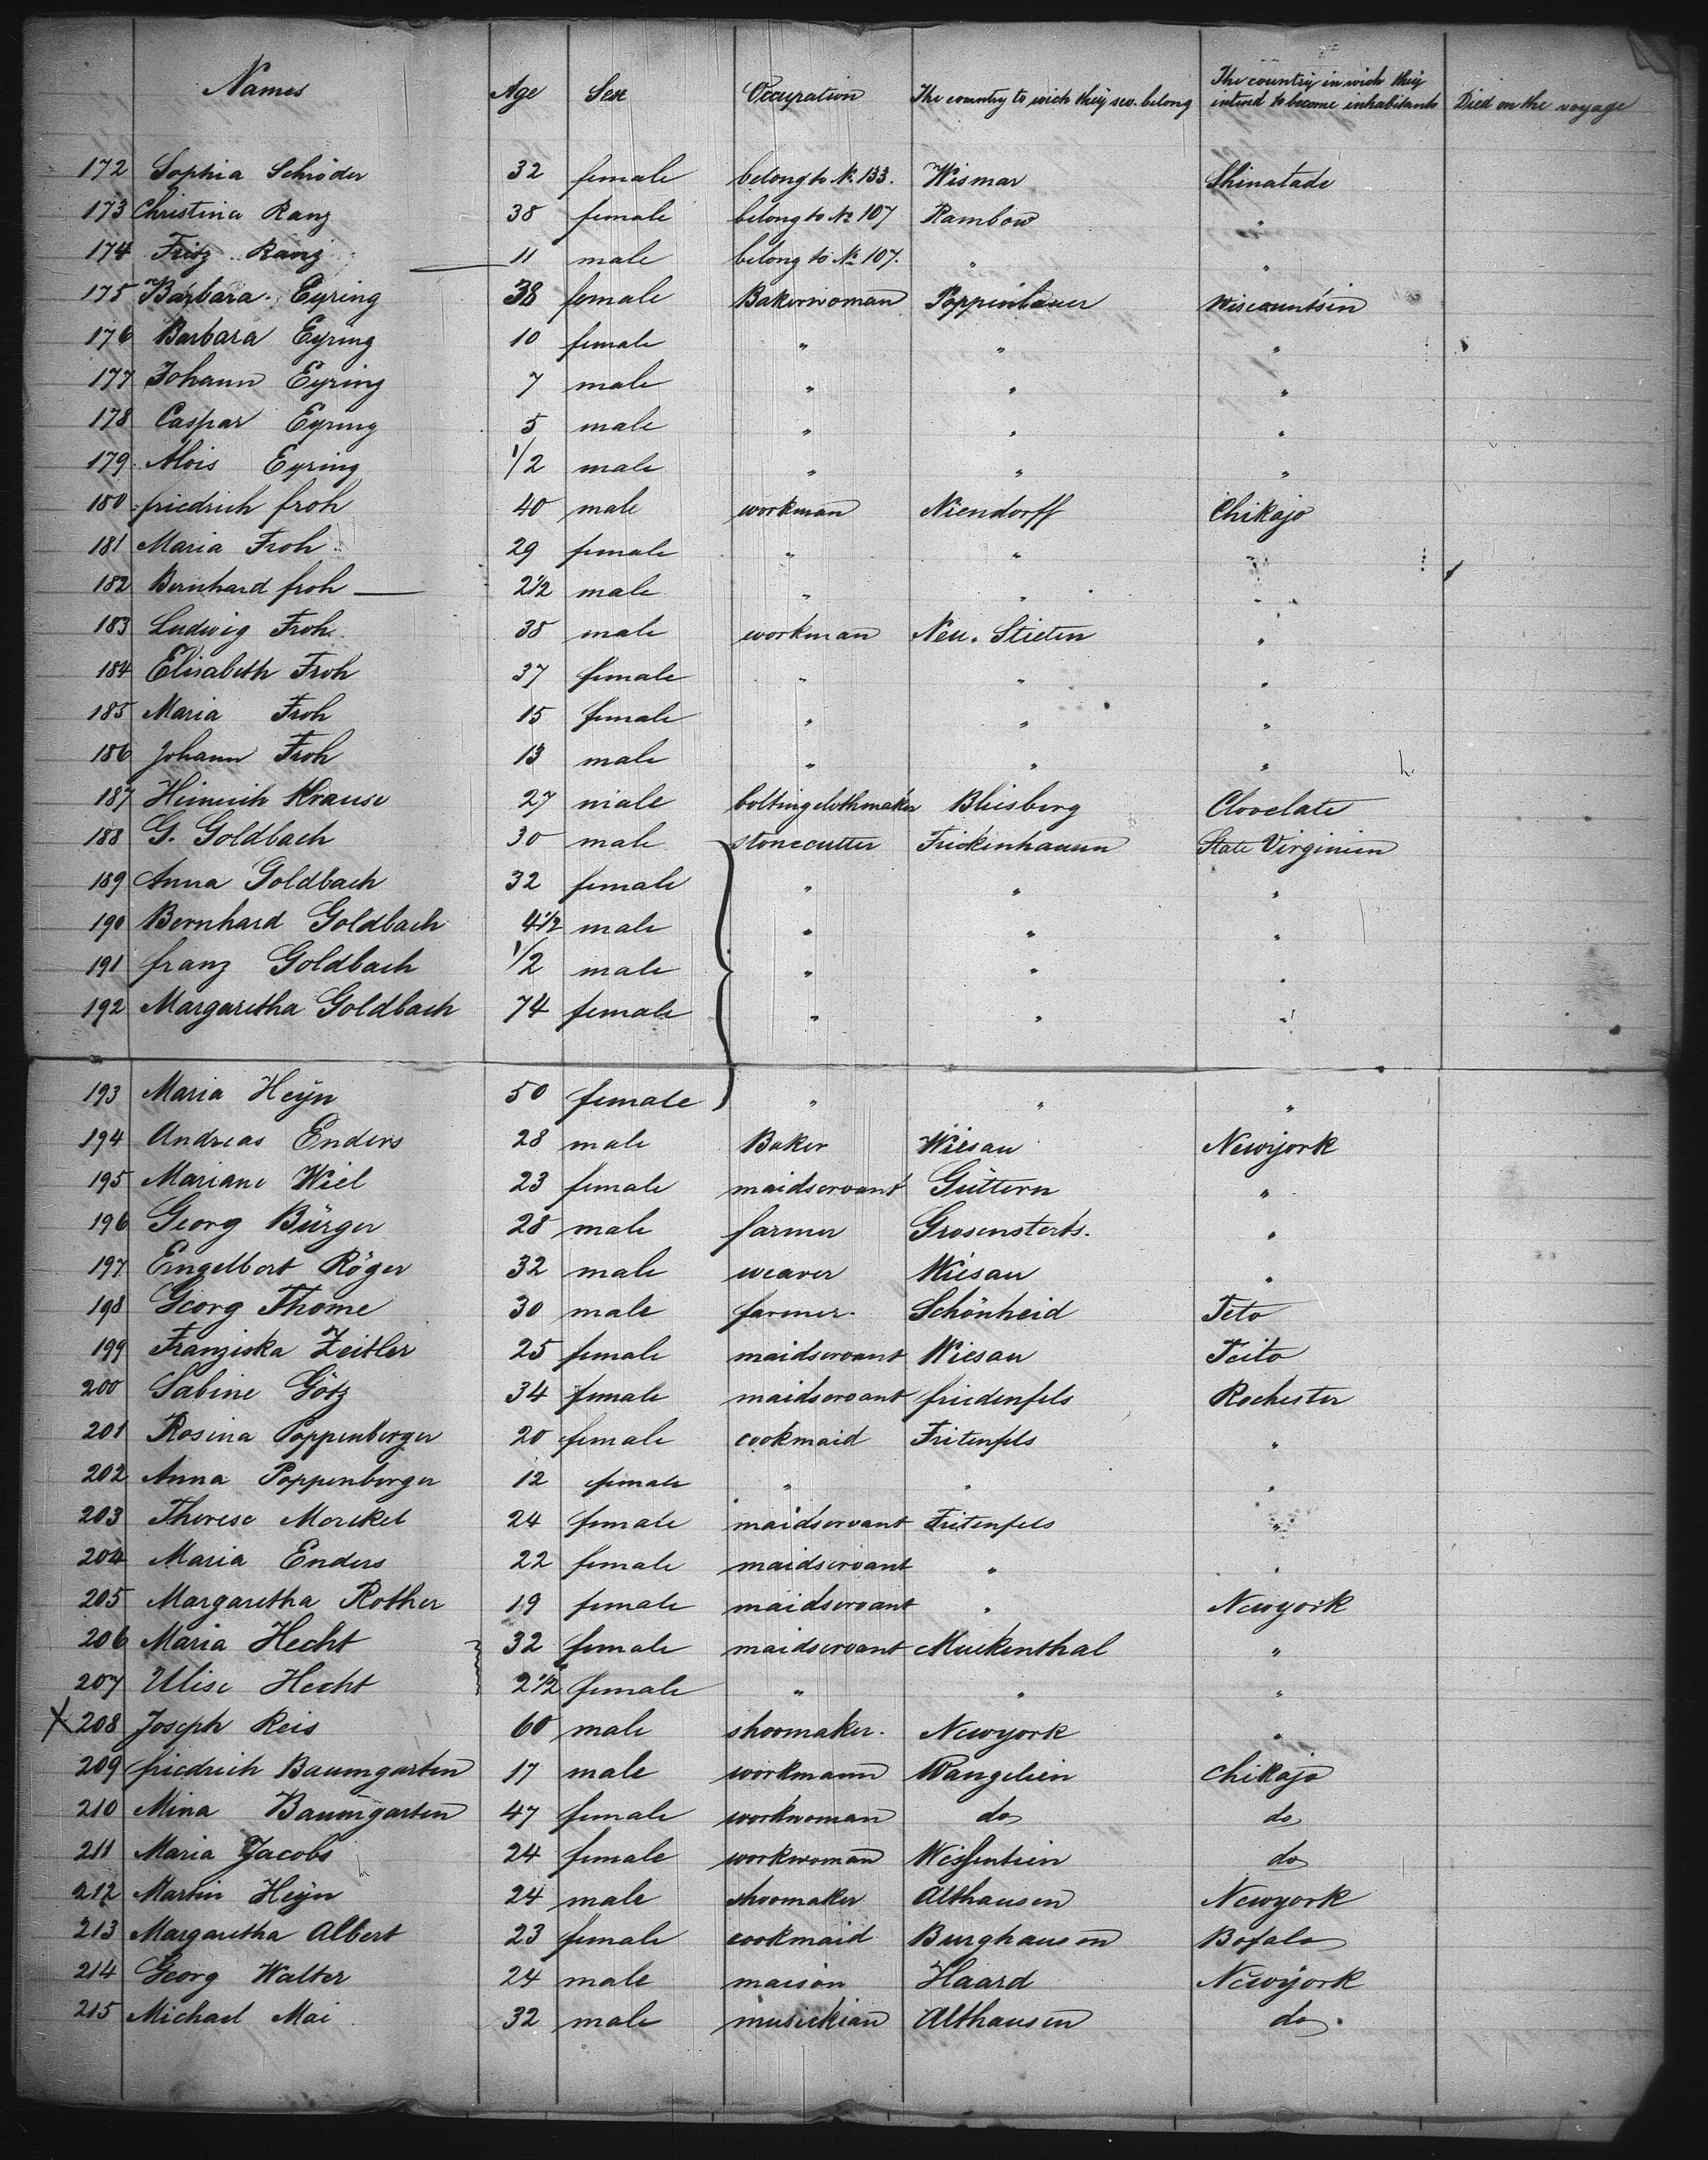 Names Age Sex Occupation The country to wich they sev. belong The country in wich they intend to become inhabitants Died on the voyage
172 Sophia Schröder 32 female belong to No 133. Wismar Shinatade
173 Christina Ranz 38 female belong to No 107 Rambow "
174 Fritz Ranz 11 male belong to No 107. " "
175 Barbara Eyring 38 female Bakerwoman Poppenlauer Wiscountsin
176 Barbara Eyring 10 female " " "
177 Johann Eyring 7 male " " "
178 Caspar Eyring 5 male " " "
179 Alois Eyring 1/2 male " " "
180 friedrich froh 40 male workman Niendorff Chikajo
181 Maria Froh 29 female " " "
182 Bernhard froh 2 1/2 male " " "
183 Ludwig Froh 38 male workman Neu. Stieten "
184 Elisabeth Froh 37 female " " "
185 Maria Froh 15 female " " "
186 Johann Froh 13 male " " "
187 Heinrich Krause 27 male boltingclothmaker Bleisberg Clovelate
188 G. Goldbach 30 male stonecutter Frickenhausen State Virginien
189 Anna Goldbach 32 female " " "
190 Bernhard Goldbach 4 1/2 male " " "
191 franz Goldbach 1/2 male " " "
192 Margaretha Goldbach 74 female " " "
193 Maria Heÿn 50 female " " "
194 Andreas Enders 28 male Baker Wiesau Newÿork
195 Mariane Wiel 23 female maidservant Güttern "
196 Georg Bürger 28 male farmer Grosensterts. "
197 Engelbert Röger 32 male weaver Wiesau "
198 Georg Thome 30 male farmer. Schönheid Teto
199 Franziska Zeitler 25 female maidservant Wiesau Teito
200 Sabine Götz 34 female maidservant friedenfels Rochester
201 Rosina Poppenberger 20 female cookmaid Fritenfels "
202 Anna Poppenberger 12 female " " "
203 Therese Merckel 24 female maidservant Fritenfels "
204 Maria Enders 22 female maidservant " "
205 Margaretha Rother 19 female maidservant " Newyork
206 Maria Hecht 32 female maidservant Muckenthal "
207 Ulise Hecht 2 1/2 female " " "
X 208 Joseph Reis 60 male shoomaker. Newyork "
209 friedrich Baumgarten 17 male workmann Wangelien Chikajo
210 Mina Baumgarten 47 female workwoman do do
211 Maria Jacobs 24 female workwoman Wessentien do
212 Martin Heyn 24 male shoomaker Althausen Newyork
213 Margaretha Albert 23 female cookmaid Burghausen Bofalo
214 Georg Walter 24 male maison Haard Newÿork
215 Michael Mai 32 male musickian Althausen do.